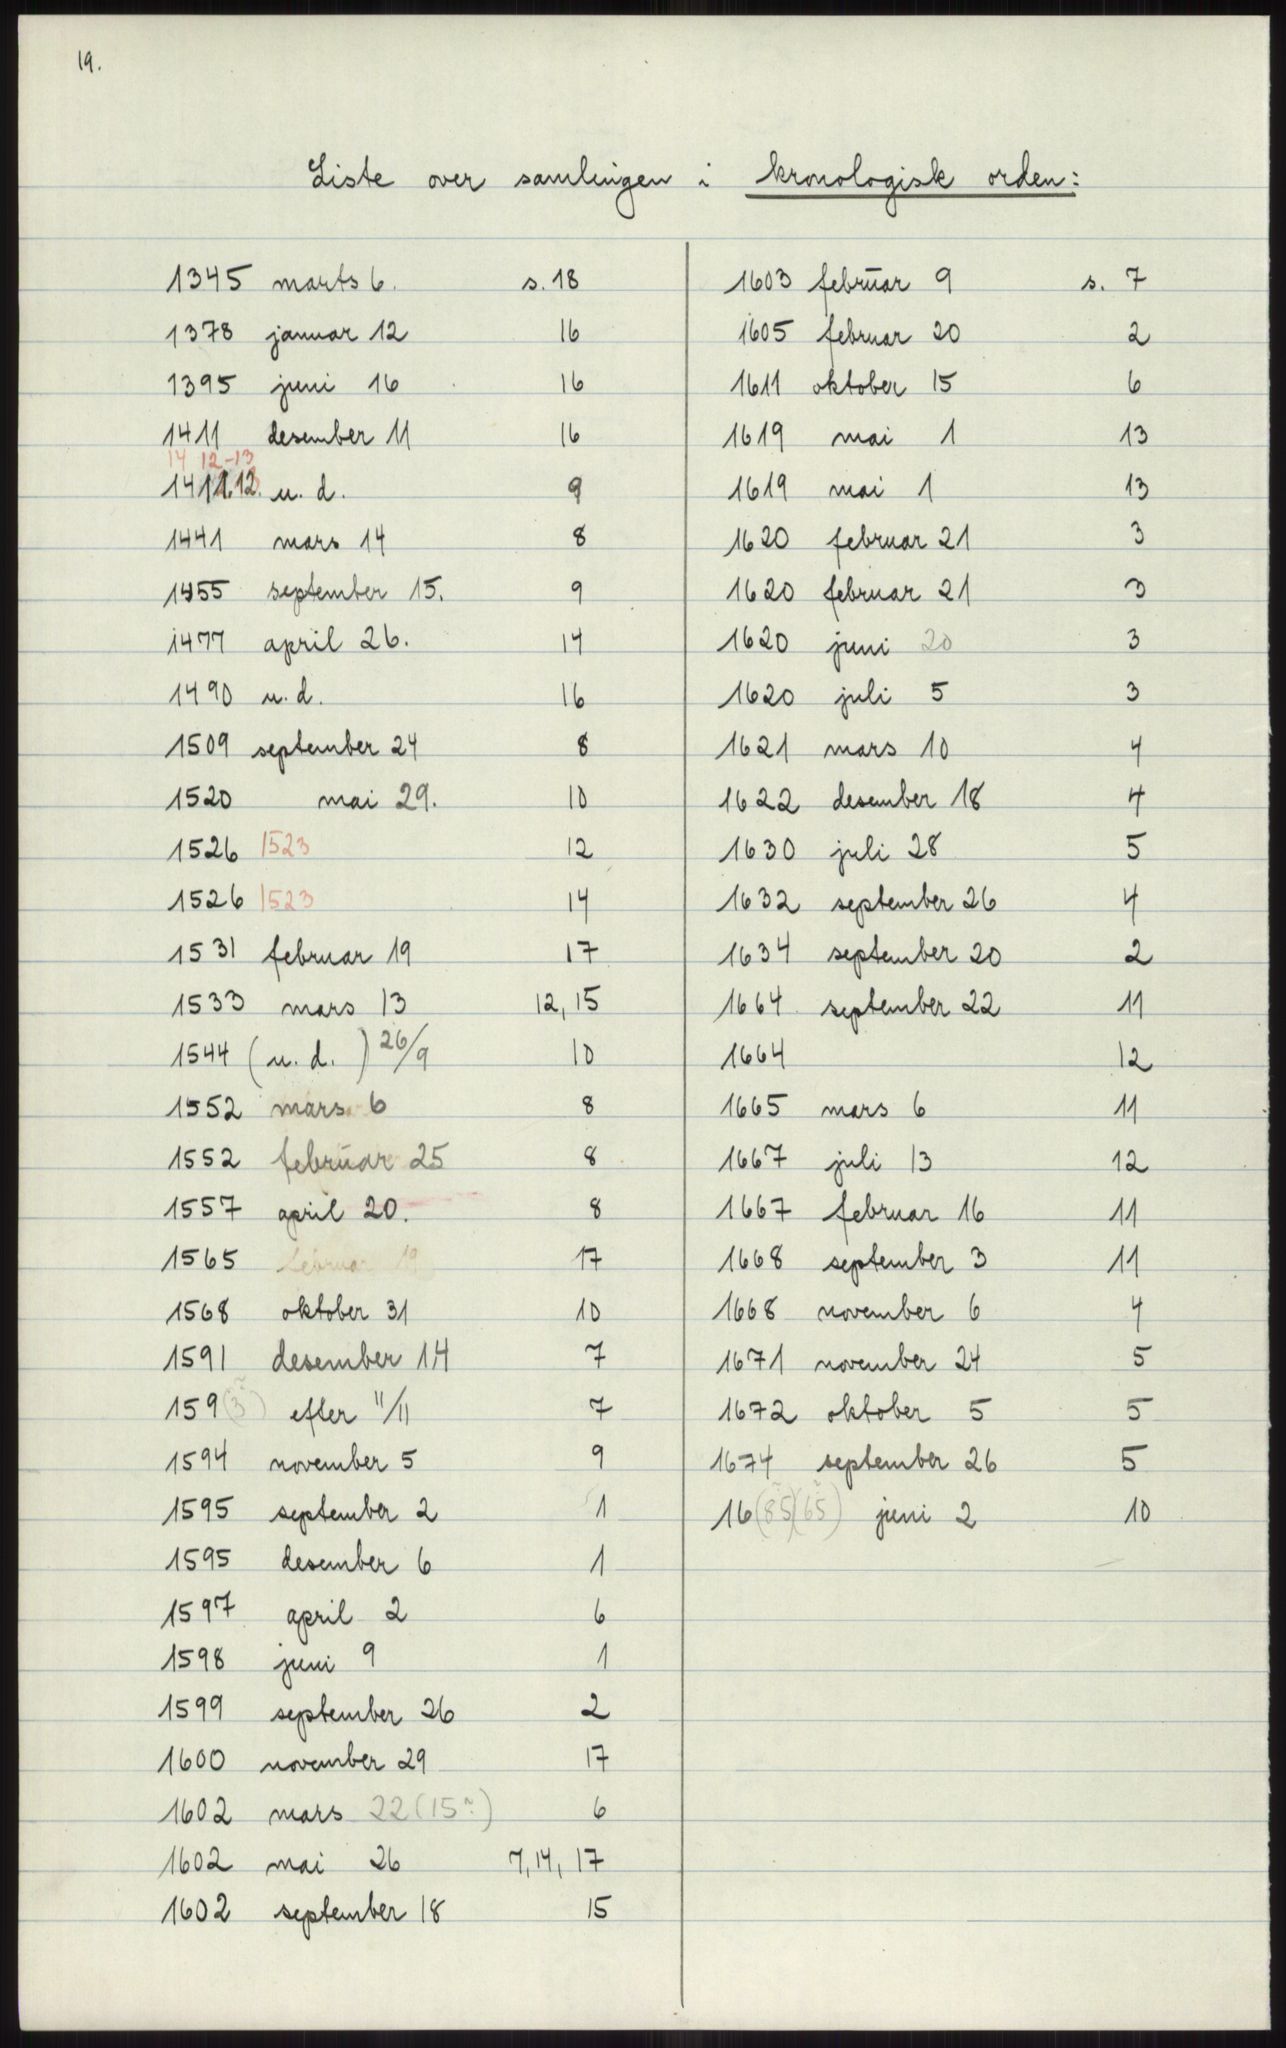 19.
Liste over samlingen i kronologisk orden:
1345 marts 6. s. 18
1378 januar 12 16
1395 juni 16 16
1411 desember 11 16
14 12-13
1411.12. u. d. 9
1441 mars 14 8
1455 september 15. 9
1477 april 26. 14
1490 u. d. 16
1509 september 24 8
1520 mai 29. 10
1526 1523 12
1526 1523 14
1531 februar 19 17
1533 mars 13 12, 15
1544 (u. d.) 26/9 10
1552 mars 6 8
1552 februar 25 8
1557 april 20. 8
1565 februar 19 17
1568 oktober 31 10
1591 desember 14 7
159(3?) efter 11/11 7
1594 november 5 9
1595 september 2 1
1595 desember 6 1
1597 april 2 6
1598 juni 9 1
1599 september 26 2
1600 november 29 17
1602 mars 22 (15?) 6
1602 mai 26 7, 14, 17
1602 september 18 15
1603 februar 9 s. 7
1605 februar 20 2
1611 oktober 15 6
1619 mai 1 13
1619 mai 1 13
1620 februar 21 3
1620 februar 21 3
1620 juni 20 3
1620 juli 5 3
1621 mars 10 4
1622 desember 18 4
1630 juli 28 5
1632 september 26 4
1634 september 20 2
1664 september 22 11
1664 12
1665 mars 6 11
1667 juli 13 12
1667 februar 16 11
1668 september 3 11
1668 november 6 4
1671 november 24 5
1672 oktober 5 5
1674 september 26 5
16(85?)(65?) juni 2 10